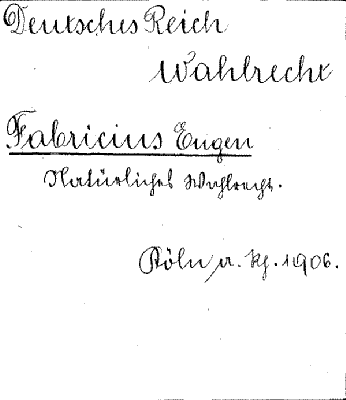 Deutsches Reich
Wahlrecht
Fabricius Eugen
Natürliches Wahlrecht.
Köln a. Rh. 1906.